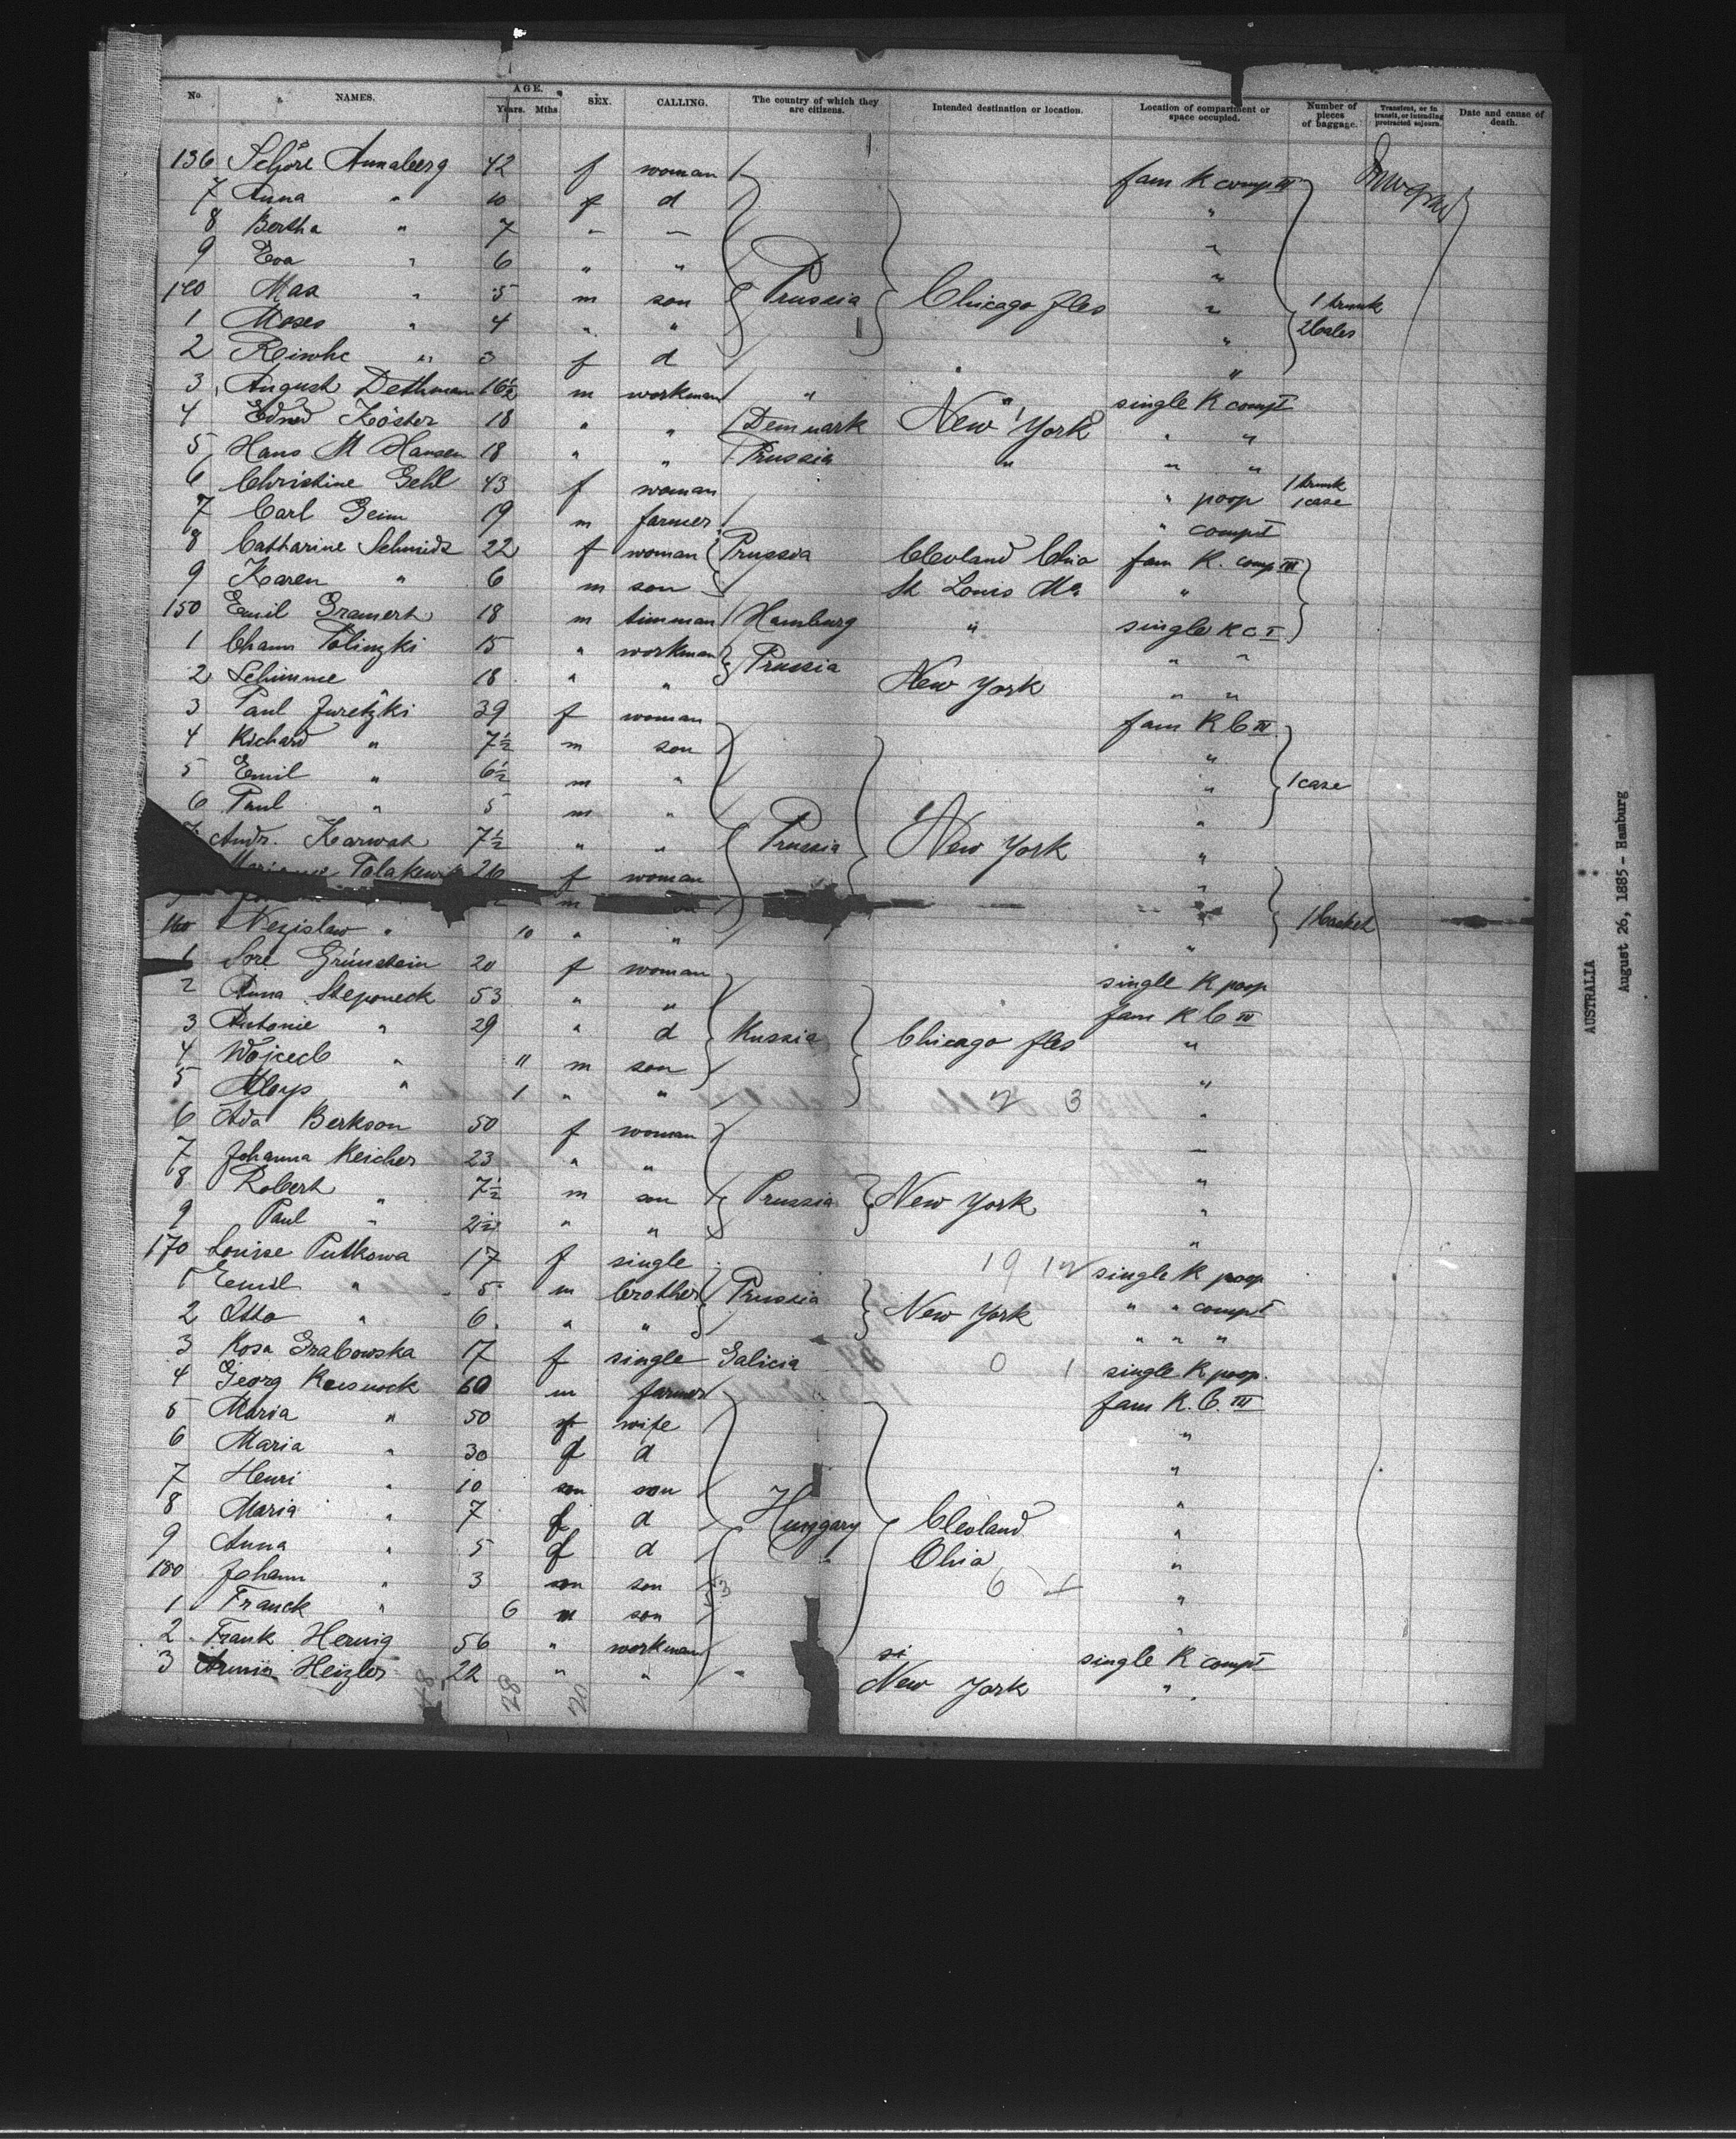 No. NAMES. AGE. Years. Mths. SEX. CALLING. The country of which they are citizens. Intended destination or location. Location of compartment or space occupied. Number of pieces of baggage. Transient, or in transit, or intending protracted sojourn. Date and cause of death.
136 Annaberg 42 f woman fam K comp III
7 Anna " 10 f d "
8 Bertha " 7 - - "
9 Eva " 6 " " "
140 Max " 5 m son Prussia Chicago Jles " 1 trunk
1 Moses " 4 " " " 2 bales
2 " 3 f d "
3 August Dethman 16½ m workman " " single K comp I
4 Köster 18 " " Denmark New York " "
5 Hans M Hansen 18 " " Prussia " " "
6 Christine Gehl 43 f woman " poop 1 trunk 1 case
7 Carl Geim 19 m farmer " comp I
8 Catharine Schmidt 22 f woman Prussia Clevland Ohio fam K. comp III
9 Karen " 6 m son St Louis Mo "
150 Emil Gramert 18 m timman Hamburg " single K C I
1 Chann Polinzki 15 " workman Prussia " "
2 Schimme 18 " " New York " "
3 Paul Juretzki 39 f woman fam K C III
4 Richard " 7½ m son "
5 Emil " 6½ m " " 1 case
6 Paul " 5 m " "
Andr. Karwat 7½ " " Prussia New York "
26 f woman "
m
160 " 10 " " " 1 basket
1 Sore Grünstein 20 f woman single K poop
2 Anna Steponeck 53 " " fam K C III
3 Antonie " 29 " d Russia Chicago Jles "
4 Wojcech " 11 m son "
5 Aloys " 1 " " 2 3 "
6 Ada Berkson 50 f woman
7 Johanna Reicher 23 " " "
8 Robert " 7½ m son Prussia New York "
9 Paul " 2½ " " "
170 Louise Putkowa 17 f single 19 12 single K poop
1 Emil " 5 m brother Prussia New York " " comp I
2 Otto " 6 " " " " "
3 Rosa Grabowska 17 f single Galicia 0 1 single K poop.
4 Georg 60 m farmer fam K. C. III
5 Maria " 50 f wife "
6 Maria " 30 f d "
7 Henri " 10 m son "
8 Maria " 7 f d Hungary Clevland "
9 Anna " 5 f d Ohio "
180 Johann " 3 m son 6 "
1 Franck " 6 m son "
2 Frank Hernig 56 " workman single K comp I
3 Armin Heizler 22 " " " New York "
48 28 20
AUSTRALIA
August 26, 1885 - Hamburg